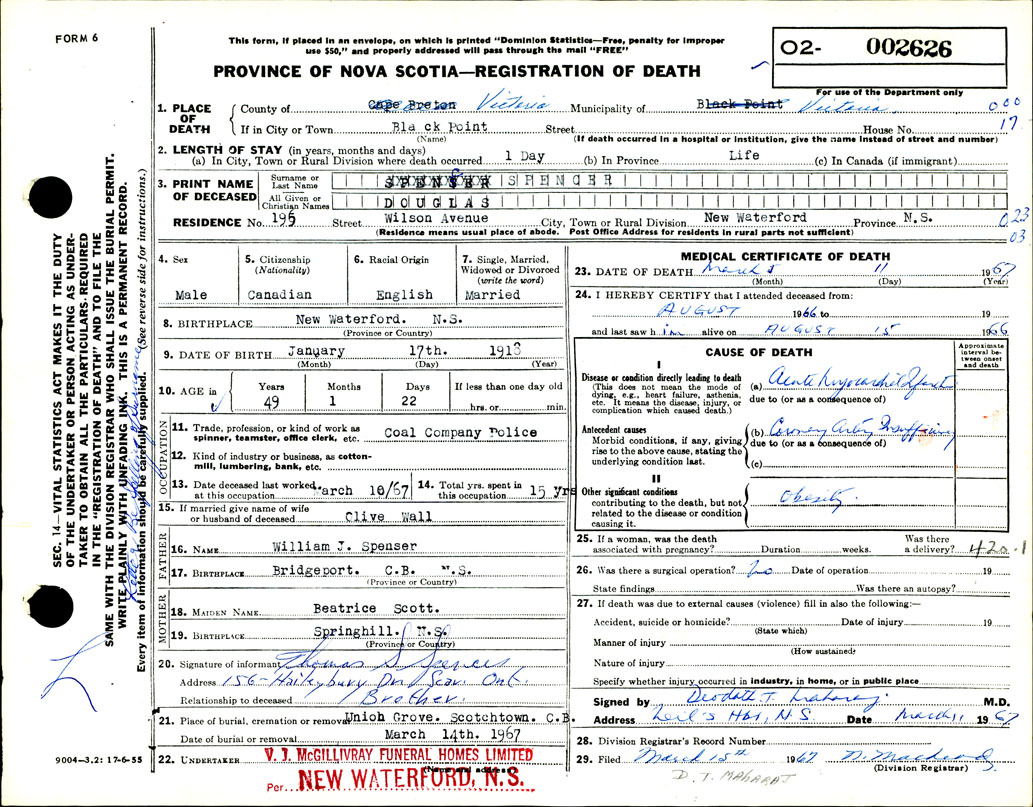 FORM 6
This form, if placed in an envelope, on which is printed "Dominion Statistics—Free, penalty for improper
use $50," and properly addressed will pass through the mail "FREE"
O2- 002626
PROVINCE OF NOVA SCOTIA—REGISTRATION OF DEATH
For use of the Department only
1. PLACE OF DEATH
County of Cape Breton Victoria Municipality of Black Point Victoria 000
If in City or Town Black Point Street House No. 17
(Name) (If death occurred in a hospital or institution, give the name instead of street and number)
2. LENGTH OF STAY (in years, months and days)
(a) In City, Town or Rural Division where death occurred 1 Day (b) In Province Life (c) In Canada (if immigrant)
3. PRINT NAME OF DECEASED
Surname or Last Name SPENSER SPENCER
All Given or Christian Names DOUGLAS
RESIDENCE No. 195 Street Wilson Avenue City, Town or Rural Division New Waterford Province N.S. 023
(Residence means usual place of abode. Post Office Address for residents in rural parts not sufficient) 03
4. Sex
Male
5. Citizenship
(Nationality)
Canadian
6. Racial Origin
English
7. Single, Married,
Widowed or Divorced
(write the word)
Married
8. BIRTHPLACE New Waterford. N.S.
(Province or Country)
9. DATE OF BIRTH January 17th. 1918
(Month) (Day) (Year)
10. AGE in
Years Months Days If less than one day old
49 1 22 hrs. or min.
OCCUPATION
11. Trade, profession, or kind of work as
spinner, teamster, office clerk, etc. Coal Company Police
12. Kind of industry or business, as cotton-
mill, lumbering, bank, etc.
13. Date deceased last worked
at this occupation March 10/67
14. Total yrs. spent in
this occupation 15 yrs
15. If married give name of wife
or husband of deceased Clive Wall
FATHER
16. NAME William J. Spenser
17. BIRTHPLACE Bridgeport. C.B. N.S.
(Province or Country)
MOTHER
18. MAIDEN NAME Beatrice Scott.
19. BIRTHPLACE Springhill. N.S.
(Province or Country)
20. Signature of informant Thomas S Spencer
Address 156 - Haileybury Dr. Scar. Ont.
Relationship to deceased Brother.
21. Place of burial, cremation or removal Union Grove. Scotchtown. C.B.
Date of burial or removal March 14th. 1967
22. UNDERTAKER V. J. McGILLIVRAY FUNERAL HOMES LIMITED
(Name and address)
Per NEW WATERFORD, N.S.
9004-3,2: 17-6-55
MEDICAL CERTIFICATE OF DEATH
23. DATE OF DEATH March 11 1967
(Month) (Day) (Year)
24. I HEREBY CERTIFY that I attended deceased from:
AUGUST 1966 to 19
and last saw him alive on AUGUST 15 1966
CAUSE OF DEATH
Approximate
interval be-
tween onset
and death
I
Disease or condition directly leading to death
(This does not mean the mode of
dying, e.g., heart failure, asthenia,
etc. It means the disease, injury, or
complication which caused death.)
(a) Acute Myocardial Infarct
due to (or as a consequence of)
Antecedent causes
Morbid conditions, if any, giving
rise to the above cause, stating the
underlying condition last.
(b) Coronary Artery Insufficiency
due to (or as a consequence of)
(c)
II
Other significant conditions
contributing to the death, but not
related to the disease or condition
causing it.
Obesity.
25. If a woman, was the death
associated with pregnancy? Duration weeks. Was there
a delivery? 420.1
26. Was there a surgical operation? No Date of operation 19
State findings Was there an autopsy?
27. If death was due to external causes (violence) fill in also the following:—
Accident, suicide or homicide? Date of injury 19
(State which)
Manner of injury
(How sustained)
Nature of injury
Specify whether injury occurred in industry, in home, or in public place
Signed by Deodatt T. Maharaj M.D.
Address Neil's Hbr, N.S. Date March 11 1967
28. Division Registrar's Record Number
29. Filed March 15th 1967
(Division Registrar)
D. T. MAHARAJ
SEC. 14—VITAL STATISTICS ACT MAKES IT THE DUTY
OF THE UNDERTAKER OR PERSON ACTING AS UNDER-
TAKER TO OBTAIN ALL THE PARTICULARS REQUIRED
IN THE "REGISTRATION OF DEATH" AND TO FILE THE
SAME WITH THE DIVISION REGISTRAR WHO SHALL ISSUE THE BURIAL PERMIT.
WRITE PLAINLY WITH UNFADING INK. THIS IS A PERMANENT RECORD.
Every item of information should be carefully supplied. (See reverse side for instructions.)